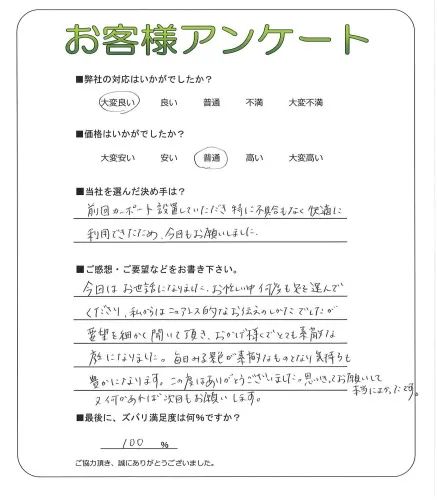 お客様アンケート
■弊社の対応はいかがでしたか?
大変良い 良い 普通 不満 大変不満
■価格はいかがでしたか?
大変安い 安い 普通 高い 大変高い
■当社を選んだ決め手は?
前回カーポート設置していただき特に不具合もなく快適に
利用できたため、今回もお願いしました。
■ご感想・ご要望などをお書き下さい。
今回はお世話になりました。お忙しい中何度も足を運んで
くださり、私からはニュアンス的なお伝えのしかたでしたが
要望を細かく聞いて頂き、おかげ様でとても素敵な
庭になりました。毎日みる景色が素敵なものとなり気持ちも
豊かになります。この度はありがとうございました。思いきってお願いして
本当によかったです。
又何かあれば次回もお願いします。
■最後に、ズバリ満足度は何%ですか?
100 %
ご協力頂き、誠にありがとうございました。